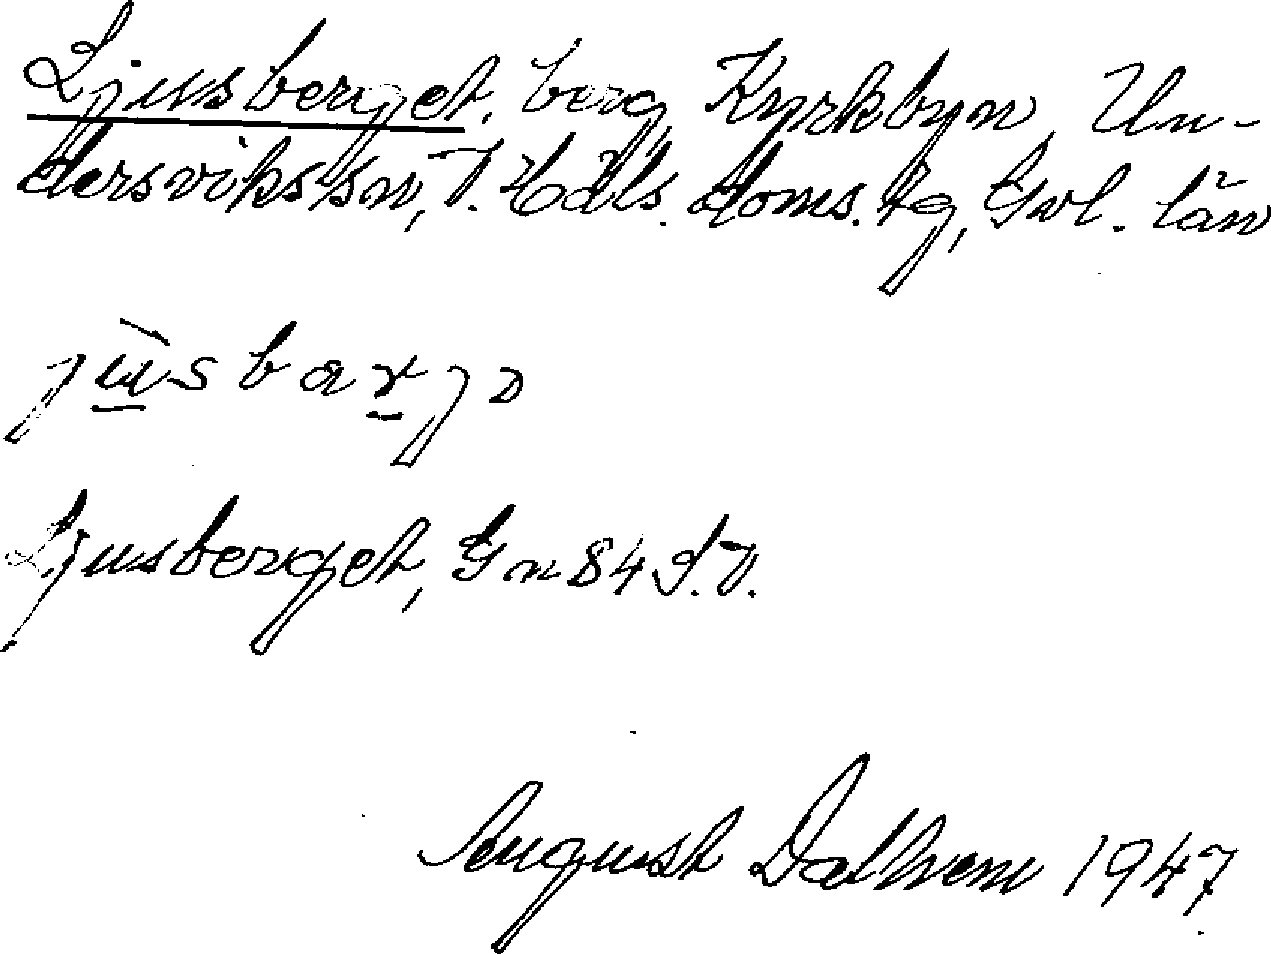 Ljusberget, berg, Kyrkbyn, Un-
dersviks sn, V. Häls. doms. tg, Gvl. län
Ljusberget, Gn 84 S.V.
August Dalhem 1947